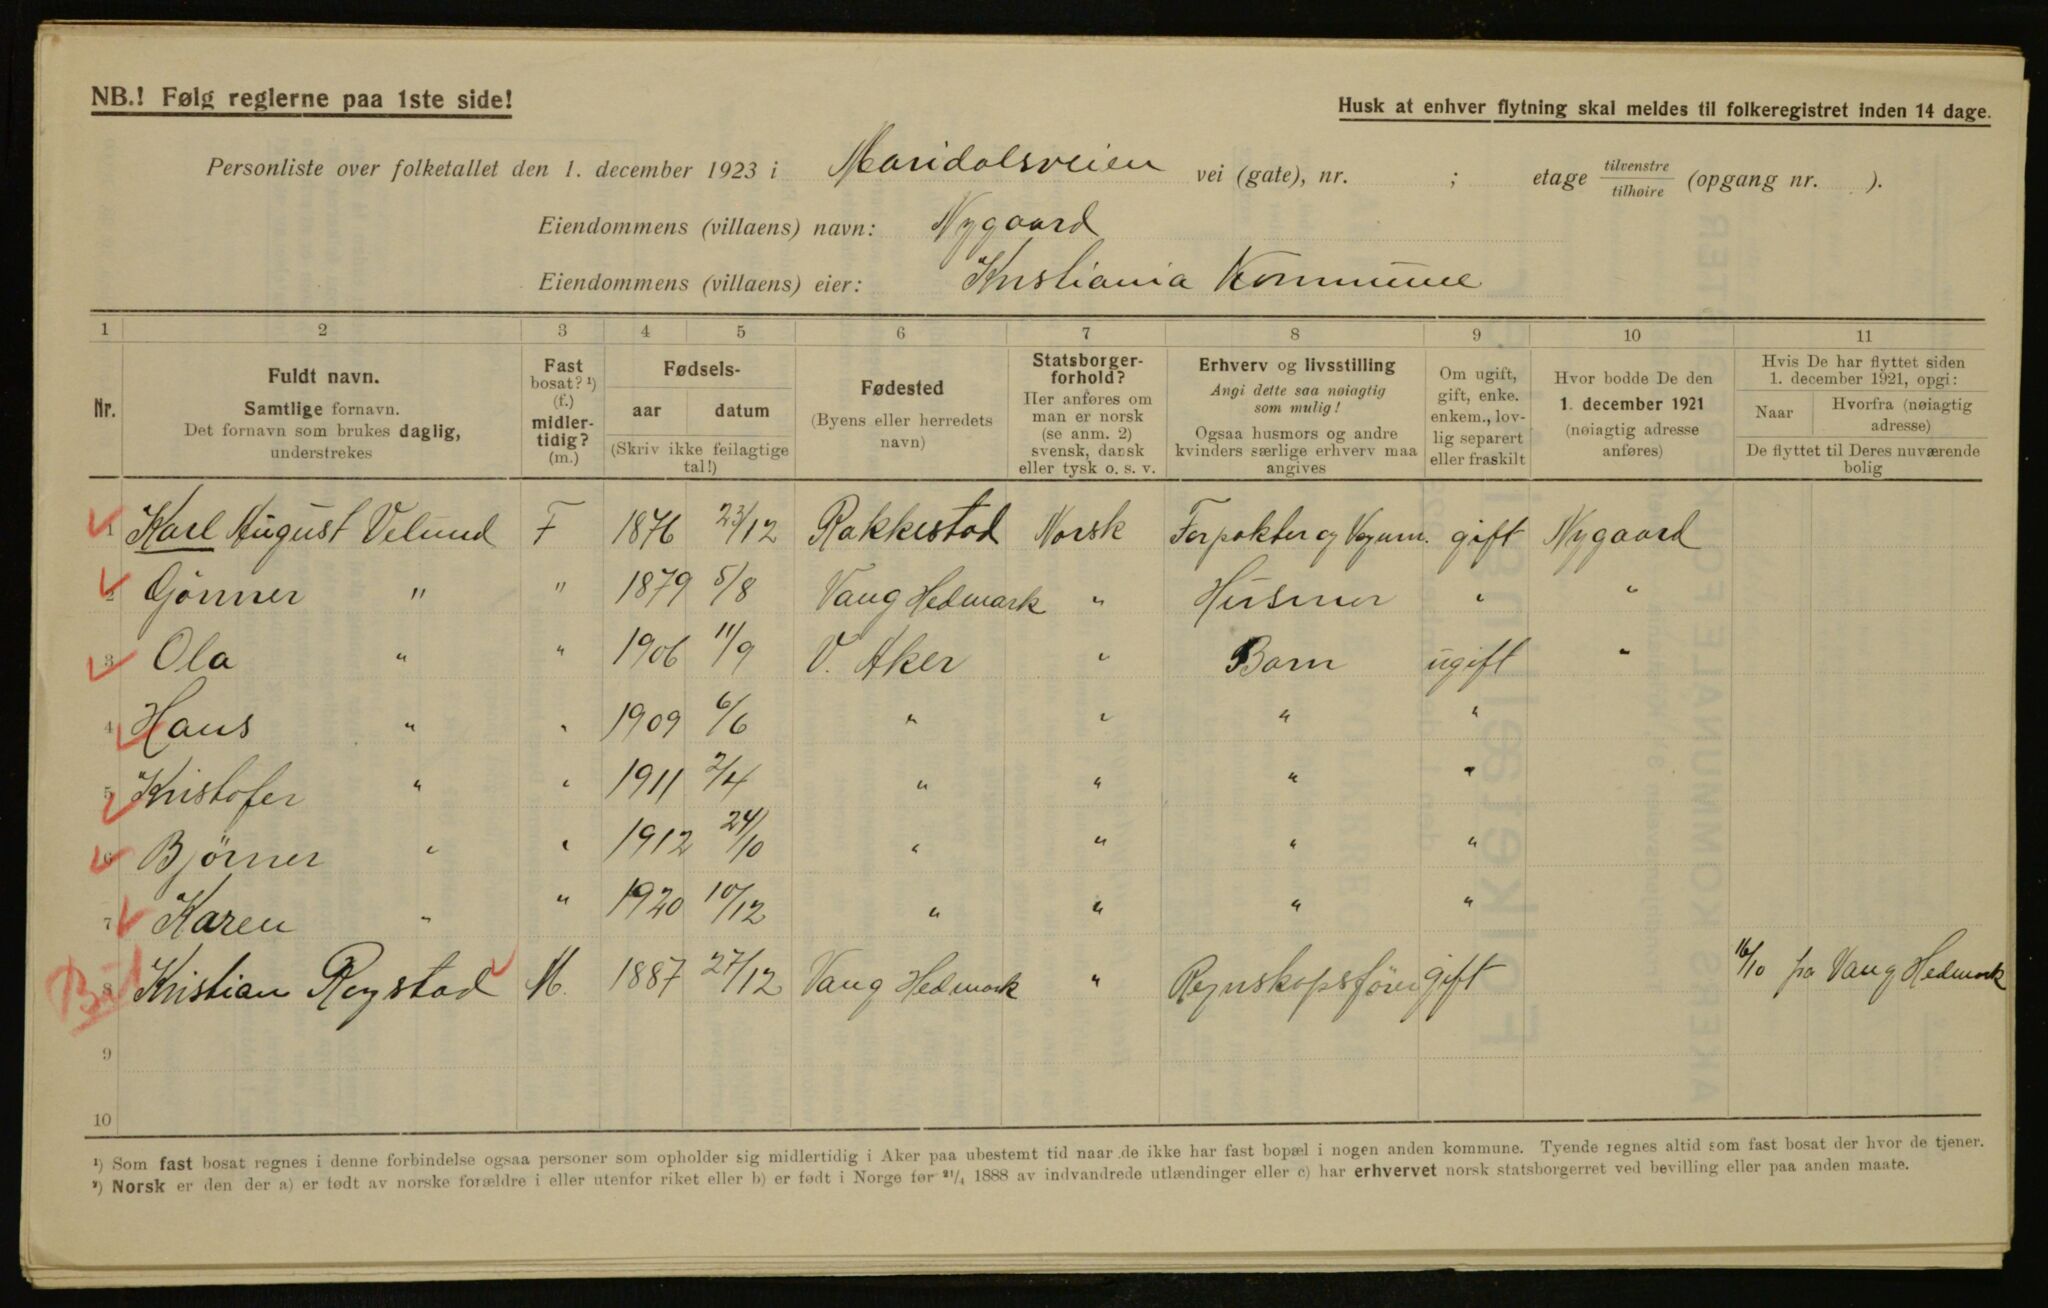 NB.! Følg reglerne paa 1ste side!
Husk at enhver flytning skal meldes til folkeregistret inden 14 dage.
Personliste over folketallet den 1. december 1923 i Maridalsveien vei (gate), nr. ; etage tilvenstre/tilhøire (opgang nr. ).
Eiendommens (villaens) navn: Nygaard
Eiendommens (villaens) eier: Kristiania Kommune
1 2 3 4 5 6 7 8 9 10 11
Nr.
Fuldt navn.
Samtlige fornavn.
Det fornavn som brukes daglig,
understrekes
Fast
bosat? ¹)
(f.)
midler-
tidig?
(m.)
Fødsels-
aar datum
(Skriv ikke feilagtige
tal!)
Fødested
(Byens eller herredets
navn)
Statsborger-
forhold?
Her anføres om
man er norsk
(se anm. 2)
svensk, dansk
eller tysk o. s. v.
Erhverv og livsstilling
Angi dette saa nøiagtig
som mulig!
Ogsaa husmors og andre
kvinders særlige erhverv maa
angives
Om ugift,
gift, enke.
enkem., lov-
lig separert
eller fraskilt
Hvor bodde De den
1. december 1921
(nøiagtig adresse
anføres)
Hvis De har flyttet siden
1. december 1921, opgi:
Naar Hvorfra (nøiagtig
adresse)
De flyttet til Deres nuværende
bolig
1 Karl August Velund F 1876 23/12 Rakkestad Norsk Forpakter og gift Nygaard
2 Gönner " " 1879 5/8 Vang Hedmark " Husmor " "
3 Ola " " 1906 11/9 V. Aker " Barn ugift "
4 Hans " " 1909 6/6 " " " "
5 Kristofer " " 1911 2/4 " " " "
6 Bjørner " " 1912 24/10 " " " "
7 Karen " " 1920 10/12 " " " "
8 Kristian Rogstad M. 1887 27/12 Vang Hedmark " Regnskapsfører gift 16/10 fra Vang Hedmark
9
10
¹) Som fast bosat regnes i denne forbindelse ogsaa personer som opholder sig midlertidig i Aker paa ubestemt tid naar de ikke har fast bopæl i nogen anden kommune. Tyende regnes altid som fast bosat der hvor de tjener.
²) Norsk er den der a) er født av norske forældre i eller utenfor riket eller b) er født i Norge før ²¹/₄ 1888 av indvandrede utlændinger eller c) har erhvervet norsk statsborgerret ved bevilling eller paa anden maate.